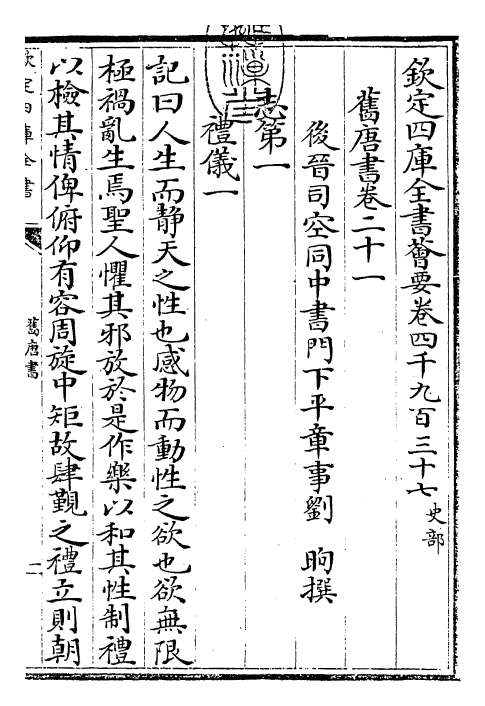 欽定四庫全書薈要卷四千九百三十七史部
舊唐書卷二十一
後晉司空同中書門下平章事劉 昫撰
志第一
禮儀一
記曰人生而静天之性也感物而動性之欲也欲無限
極禍亂生焉聖人懼其邪放於是作樂以和其性制禮
以檢其情俾俯仰有容周旋中矩故肆覲之禮立則朝
欽定四庫全書
舊唐書